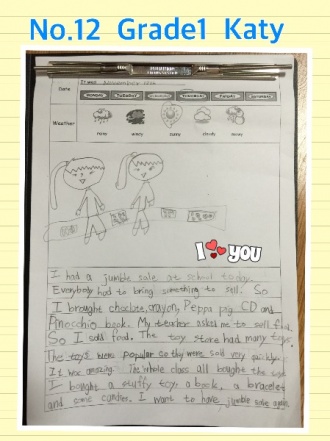 No.12 Grade1 Katy
Date
Weather
rainy windy sunny cloudy snowy
I YOU
I had a jumble sale at school today.
Everybody had to bring something to sell. So
I brought choclate, crayon, Peppa pig CD and
Pinocchio book. My teacher asked me to sell food.
So I sold food. The toy store had many toys.
The toys were popular so they were sold very quickly.
It was amazing. The whole class all bought the
I bought a stuffy toy, a book, a bracelet
and some candies. I want to have jumble sale again.